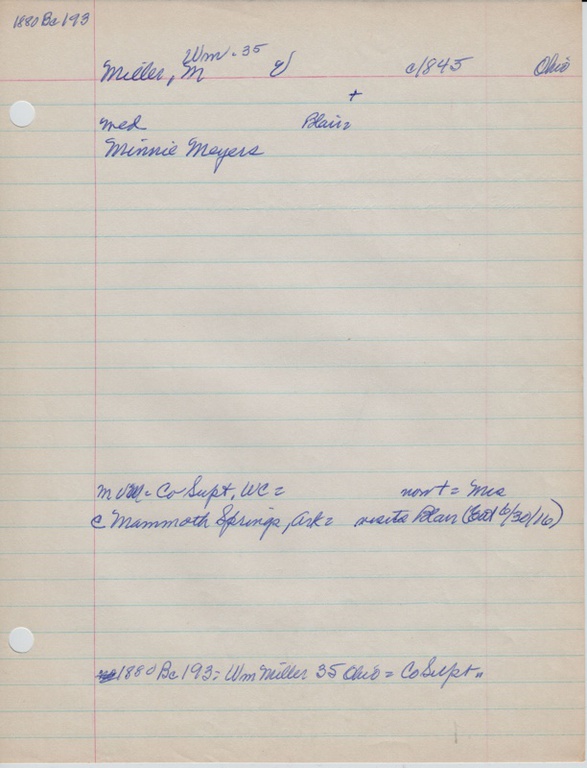 1880 Bc 193
Wm. 35
Miller, M c/845 Ohio
+
med Blair =
Minnie Meyers
m = Co Supt, WC = now + = Mrs
c Mammoth Springs, Ark = visits Blair ( 6/30/16)
1880 Bc 193 = Wm Miller 35 Ohio = Co Supt "